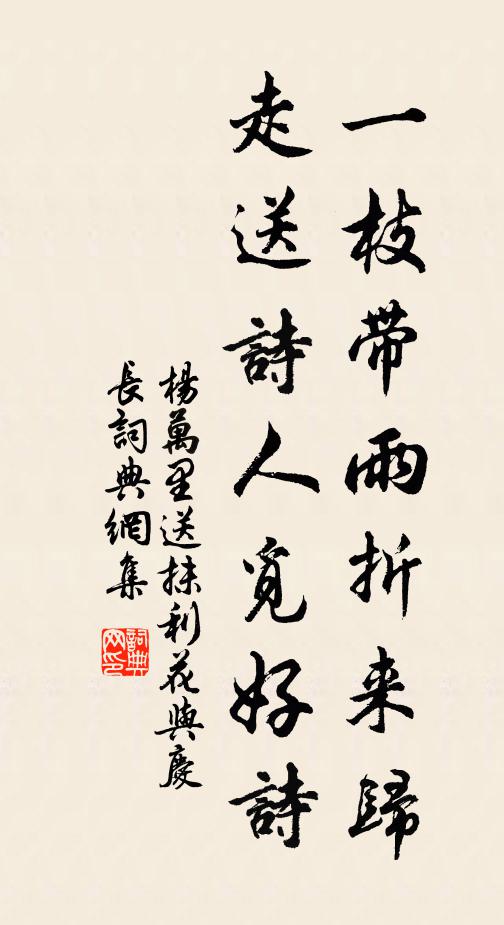 一枝帶雨折来歸
走送詩人覓好詩
楊萬里送抹利花與慶
長詞典網集
詞典网印